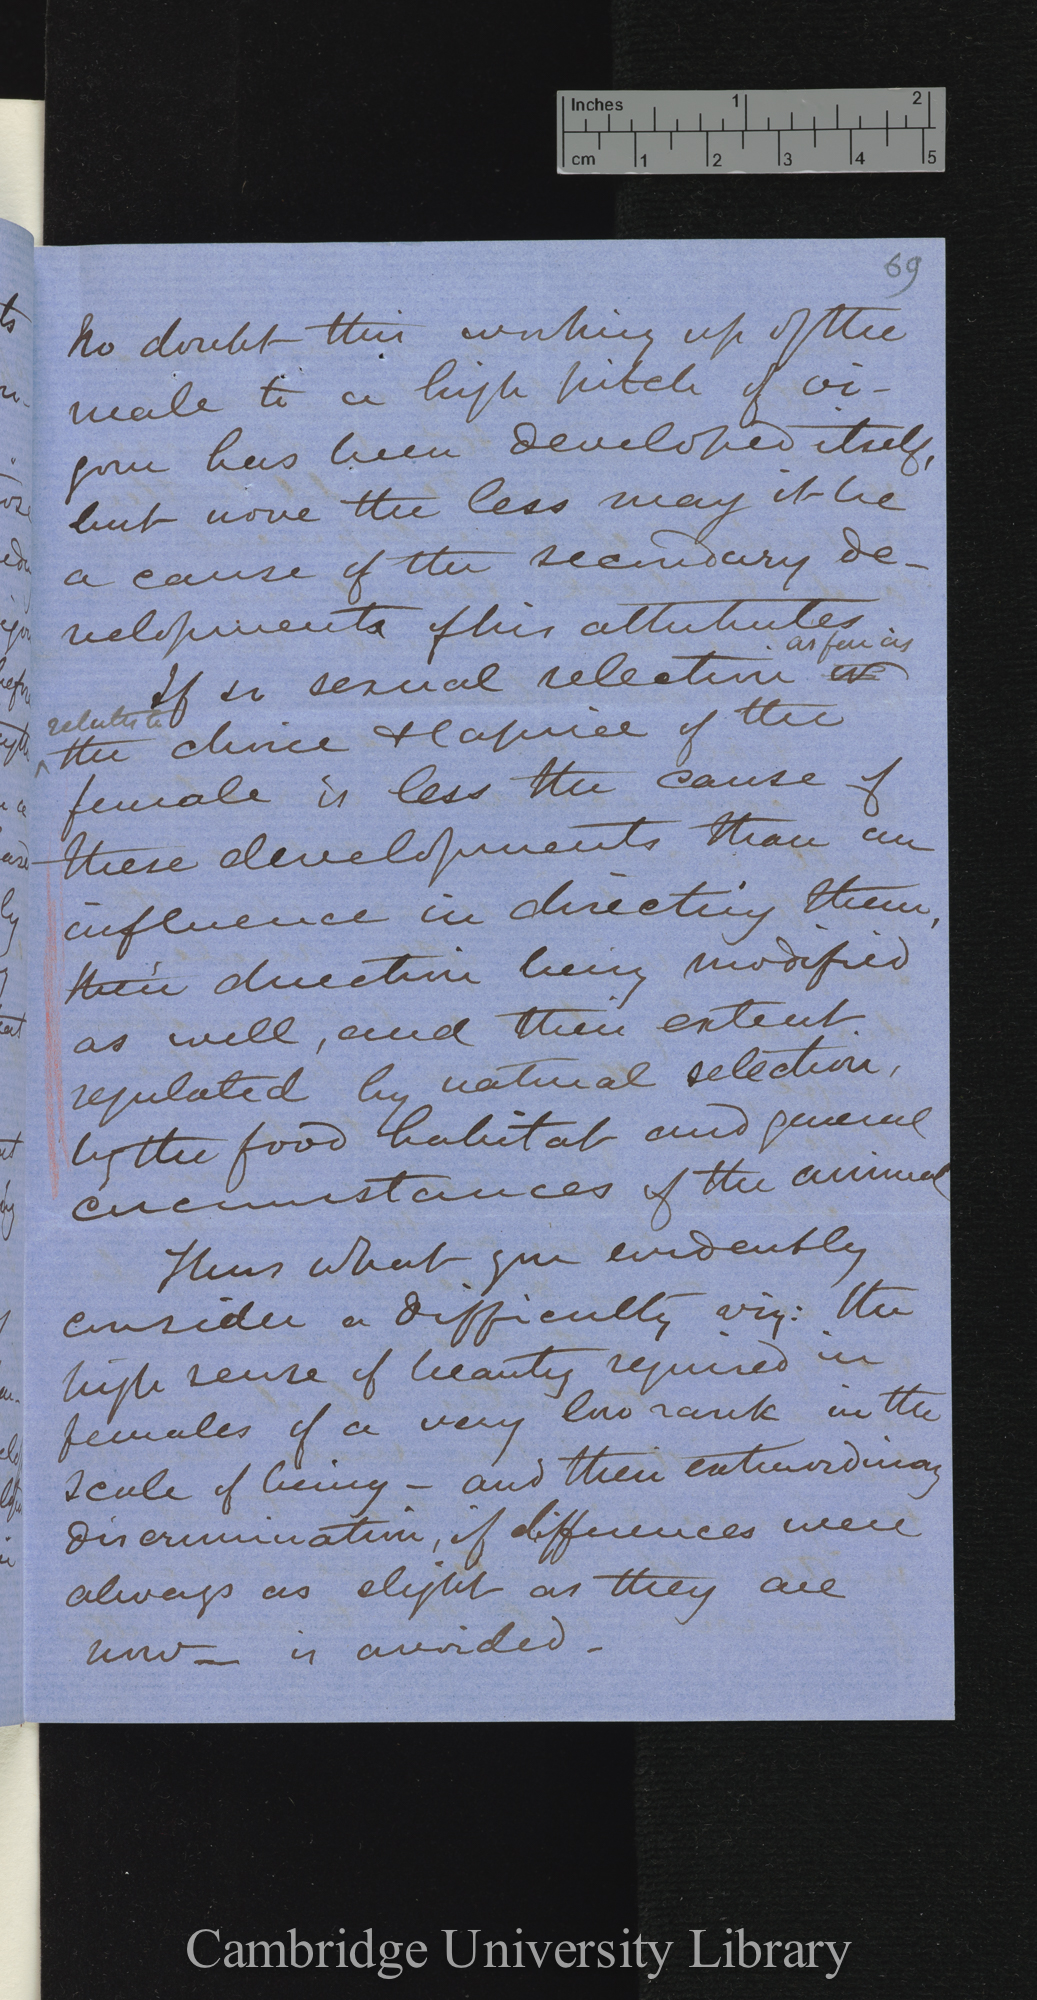 Inches 1 2
cm 1 2 3 4 5
69
No doubt this working up of the
male to a high pitch of vi-
gour has been developed itself,
but none the less may it be
a cause of the secondary de-
velopments of his attributes
as far as
If so sexual selection
relates to
the choice & caprice of the
female is less the cause of
these developments than an
influence in directing them,
their direction being modified
as well, and their extent
regulated by natural selection,
by the food habitat and general
circumstances of the animal
Thus what you evidently
consider a difficulty viz: the
high sense of beauty required in
females of a very low rank in the
scale of being – and their extraordinary
discrimination, if differences were
always as slight as they are
now – is avoided –
Cambridge University Library